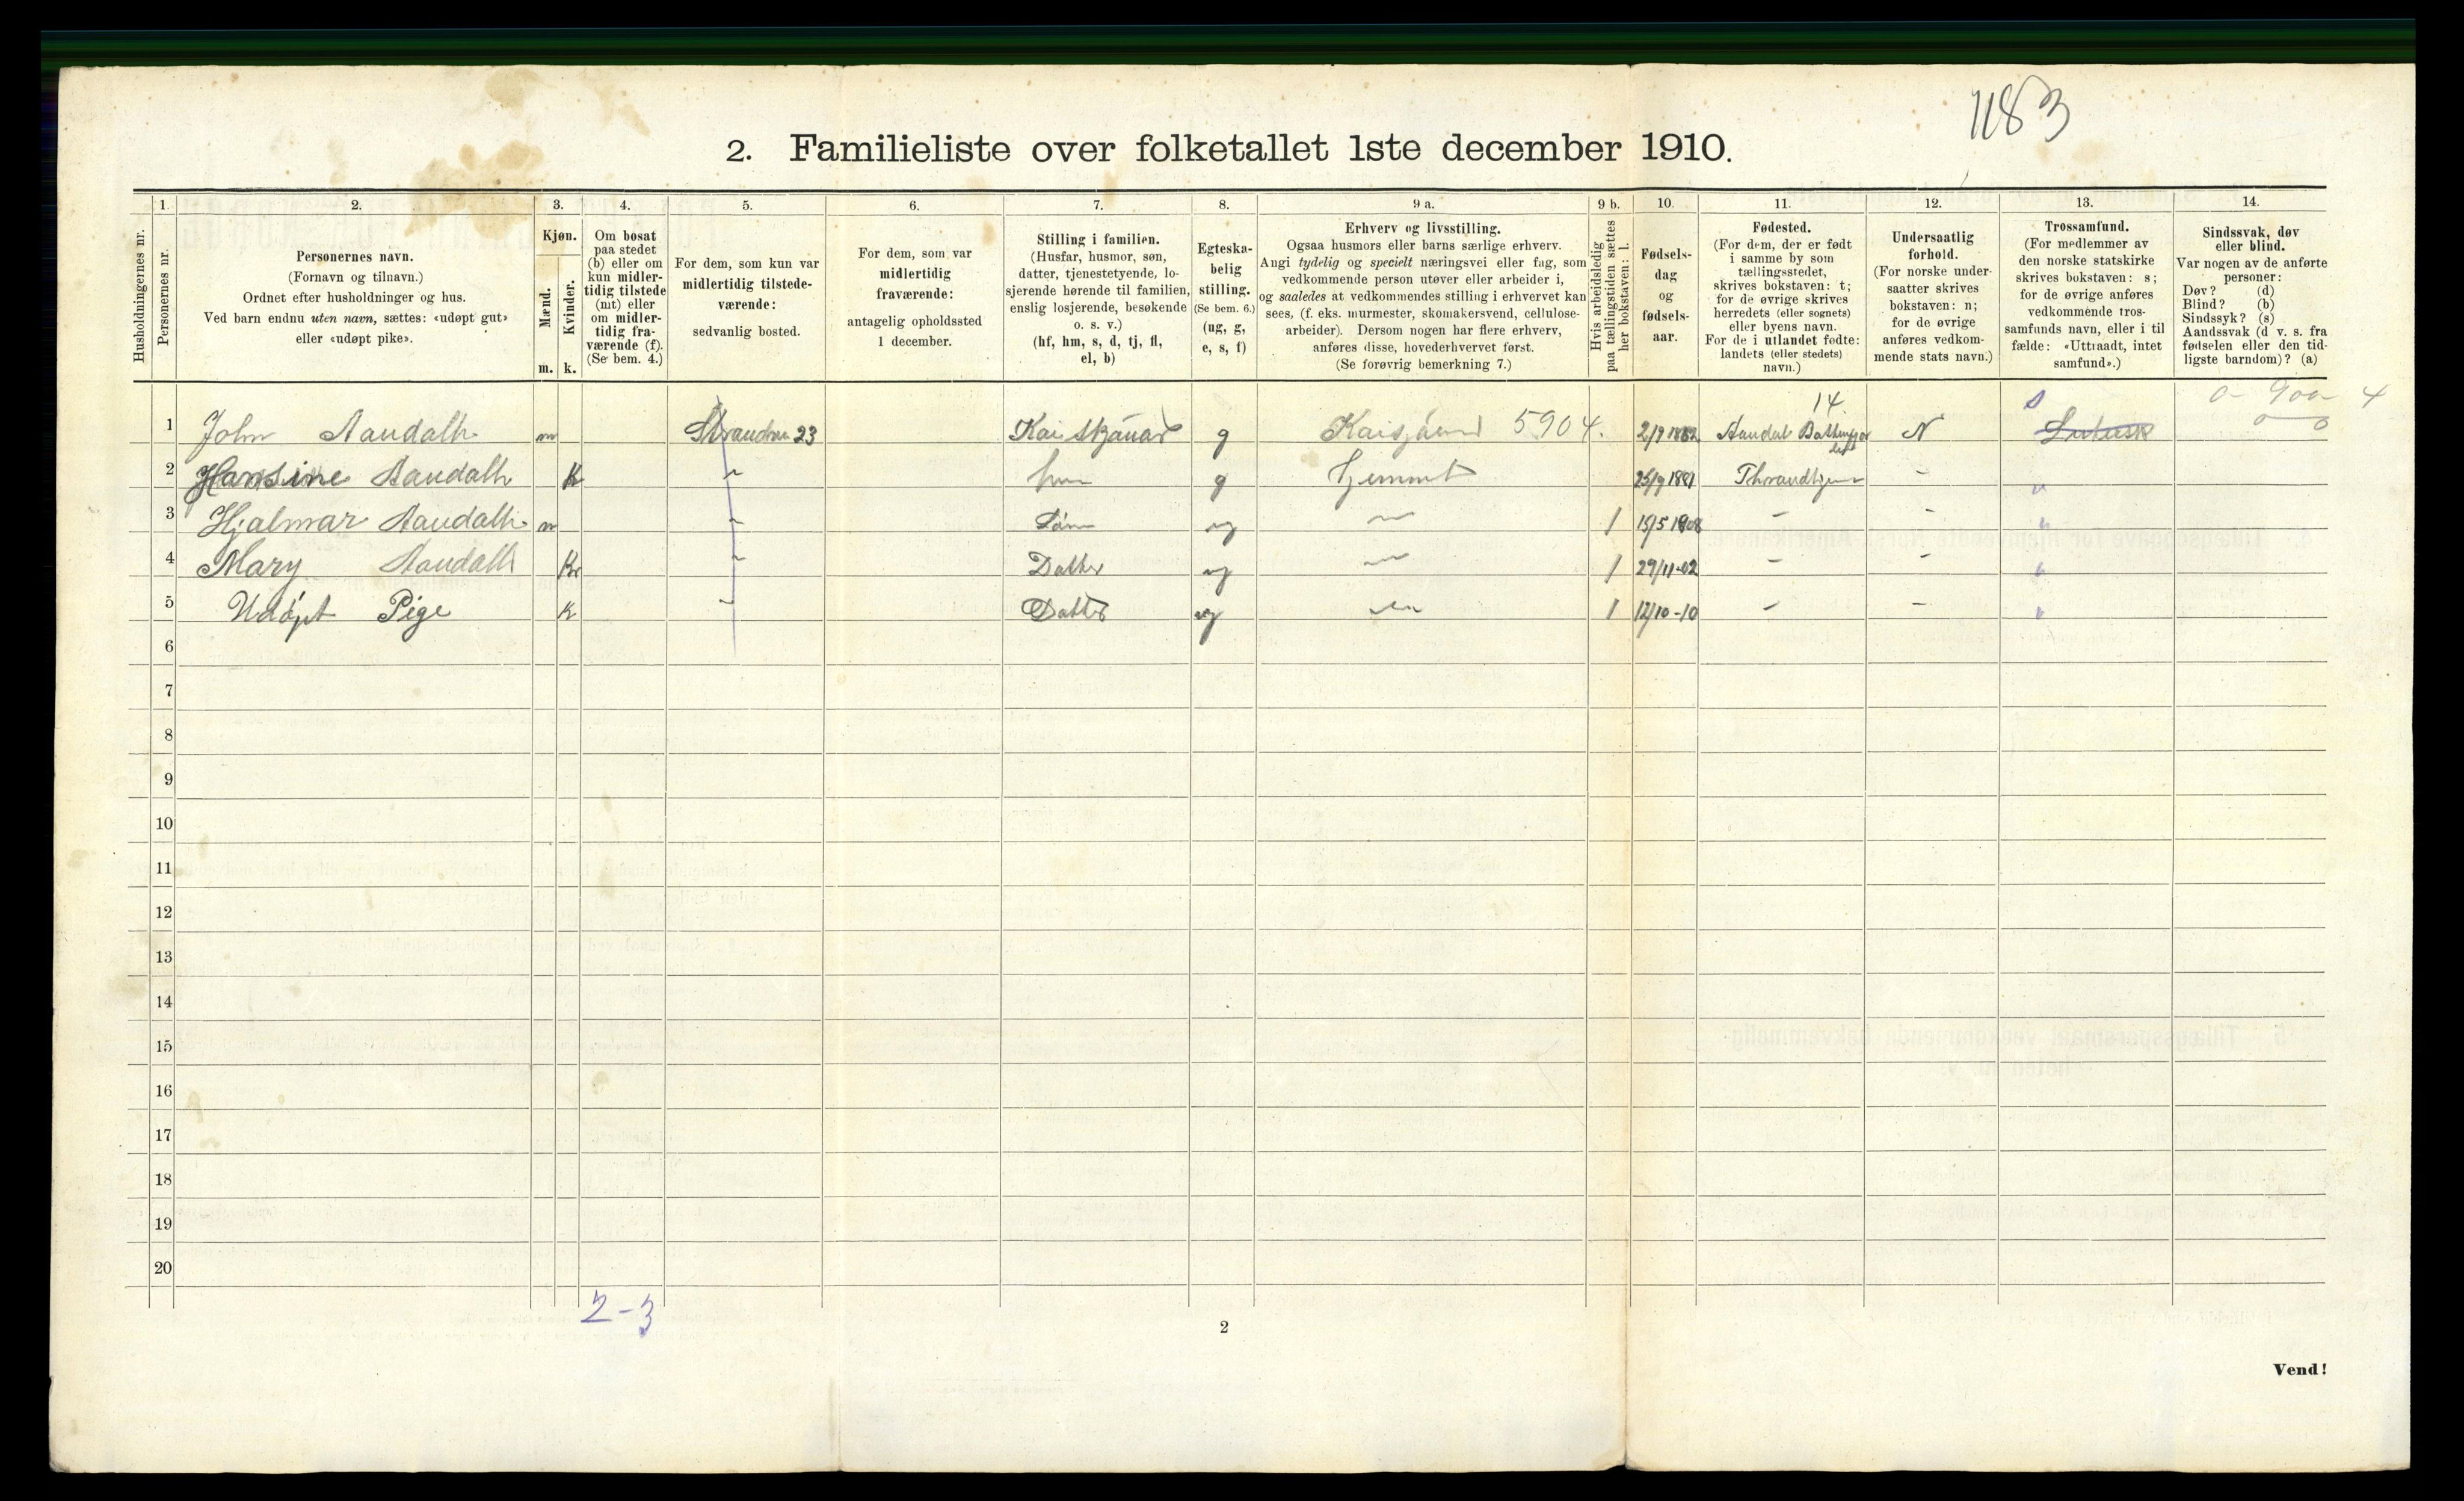 1183
2. Familieliste over folketallet 1ste december 1910.
1. 2. 3. 4. 5. 6. 7. 8. 9 a. 9 b. 10. 11. 12. 13. 14.
Husholdningernes nr.
Personernes nr.
Personernes navn.
(Fornavn og tilnavn.)
Ordnet efter husholdninger og hus.
Ved barn endnu uten navn, sættes: «udøpt gut»
eller «udøpt pike».
Kjøn.
Mænd.
Kvinder.
m. k.
Om bosat
paa stedet
(b) eller om
kun midler-
tidig tilstede
(mt) eller
om midler-
tidig fra-
værende (f).
(Se bem. 4.)
For dem, som kun var
midlertidig tilstede-
værende:
sedvanlig bosted.
For dem, som var
midlertidig
fraværende:
antagelig opholdssted
1 december.
Stilling i familien.
(Husfar, husmor, søn,
datter, tjenestetyende, lo-
sjerende hørende til familien,
enslig losjerende, besøkende
o. s. v.)
(hf, hm, s, d, tj, fl,
el, b)
Egteska-
belig
stilling.
(Se bem. 6.)
(ug, g,
e, s, f)
Erhverv og livsstilling.
Ogsaa husmors eller barns særlige erhverv.
Angi tydelig og specielt næringsvei eller fag, som
vedkommende person utøver eller arbeider i,
og saaledes at vedkommendes stilling i erhvervet kan
sees, (f. eks. murmester, skomakersvend, cellulose-
arbeider). Dersom nogen har flere erhverv,
anføres disse, hovederhvervet først.
(Se forøvrig bemerkning 7.)
Hvis arbeidsledig
paa tællingstiden sættes
her bokstaven: l.
Fødsels-
dag
og
fødsels-
aar.
Fødested.
(For dem, der er født
i samme by som
tællingsstedet,
skrives bokstaven: t;
for de øvrige skrives
herredets (eller sognets)
eller byens navn.
For de i utlandet fødte:
landets (eller stedets)
navn.)
Undersaatlig
forhold.
(For norske under-
saatter skrives
bokstaven: n;
for de øvrige
anføres vedkom-
mende stats navn.)
Trossamfund.
(For medlemmer av
den norske statskirke
skrives bokstaven: s;
for de øvrige anføres
vedkommende tros-
samfunds navn, eller i til
fælde: «Uttraadt, intet
samfund».)
Sindssvak, døv
eller blind.
Var nogen av de anførte
personer:
Døv? (d)
Blind? (b)
Sindssyk? (s)
Aandssvak (d v. s. fra
fødselen eller den tid-
ligste barndom)? (a)
14. s 0 - 900 - 4
1 John Aandalh m 23 g 5904. 2/9 1882 Aandal N
2 Hansine Aandalh K g Hjemmet 25/9 1881 Thrandhjem -
3 Hjalmar Aandalh m Søn ug 1 15/5 1908 - -
4 Mary Aandalh K Datter ug 1 29/11-02 - -
5 Udøpt Pige K Datter ug 1 12/10-10 - -
6
7
8
9
10
11
12
13
14
15
16
17
18
19
20
2-3
2
Vend!